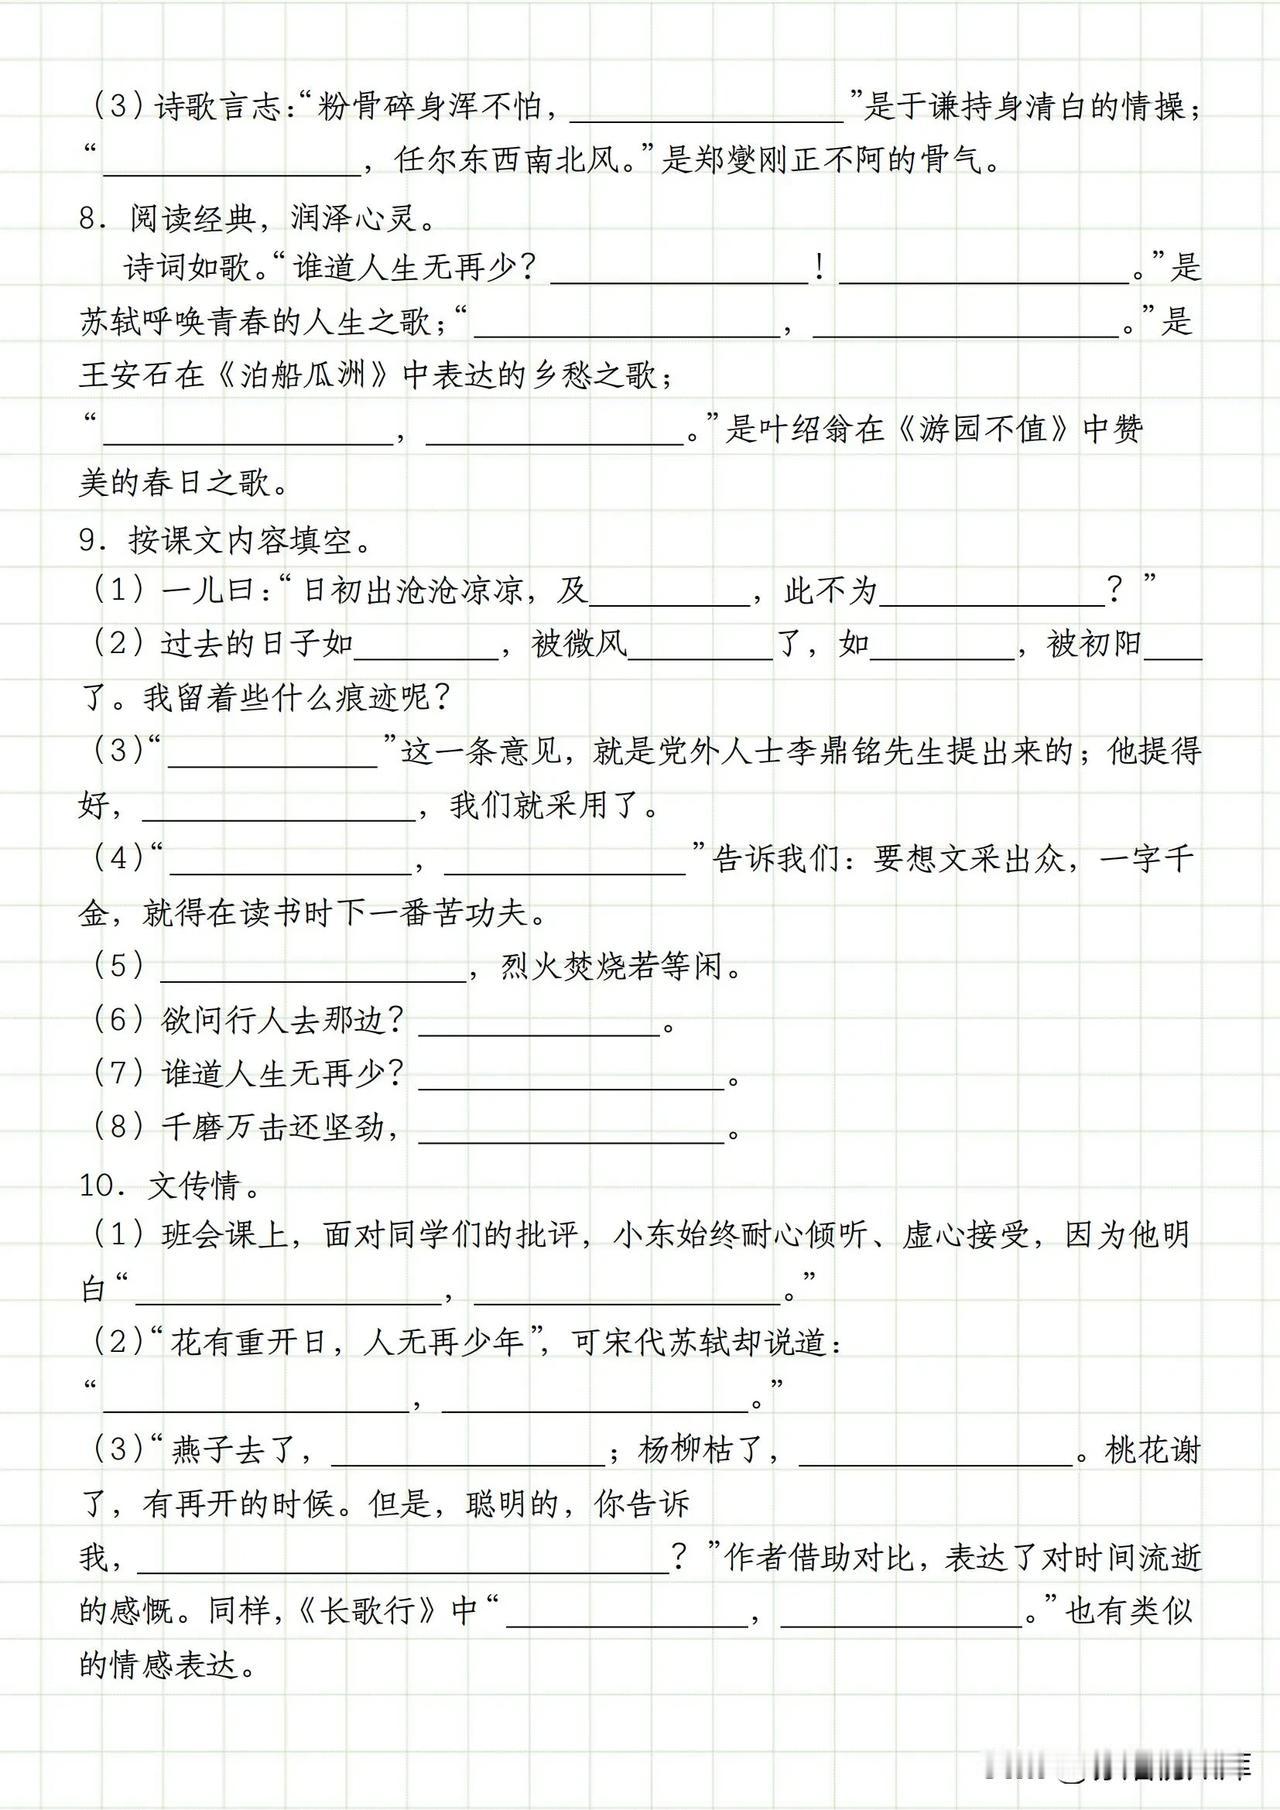 （3）诗歌言志：“粉骨碎身浑不怕，________________”是于谦持身清白的情操；
“________________，任尔东西南北风。”是郑燮刚正不阿的骨气。
8．阅读经典，润泽心灵。
诗词如歌。“谁道人生无再少？________________！________________。”是
苏轼呼唤青春的人生之歌；“________________，________________。”是
王安石在《泊船瓜洲》中表达的乡愁之歌；
“________________，________________。”是叶绍翁在《游园不值》中赞
美的春日之歌。
9．按课文内容填空。
（1）一儿曰：“日初出沧沧凉凉，及__________，此不为______________？”
（2）过去的日子如_________，被微风_________了，如_________，被初阳____
了。我留着些什么痕迹呢？
（3）“_____________”这一条意见，就是党外人士李鼎铭先生提出来的；他提得
好，_________________，我们就采用了。
（4）“_______________，_______________”告诉我们：要想文采出众，一字千
金，就得在读书时下一番苦功夫。
（5）___________________，烈火焚烧若等闲。
（6）欲问行人去那边？_______________。
（7）谁道人生无再少？___________________。
（8）千磨万击还坚劲，___________________。
10．文传情。
（1）班会课上，面对同学们的批评，小东始终耐心倾听、虚心接受，因为他明
白“___________________，___________________。”
（2）“花有重开日，人无再少年”，可宋代苏轼却说道：
“___________________，___________________。”
（3）“燕子去了，_________________；杨柳枯了，_________________。桃花谢
了，有再开的时候。但是，聪明的，你告诉
我，_________________________________？”作者借助对比，表达了对时间流逝
的感慨。同样，《长歌行》中“_______________，_______________。”也有类似
的情感表达。